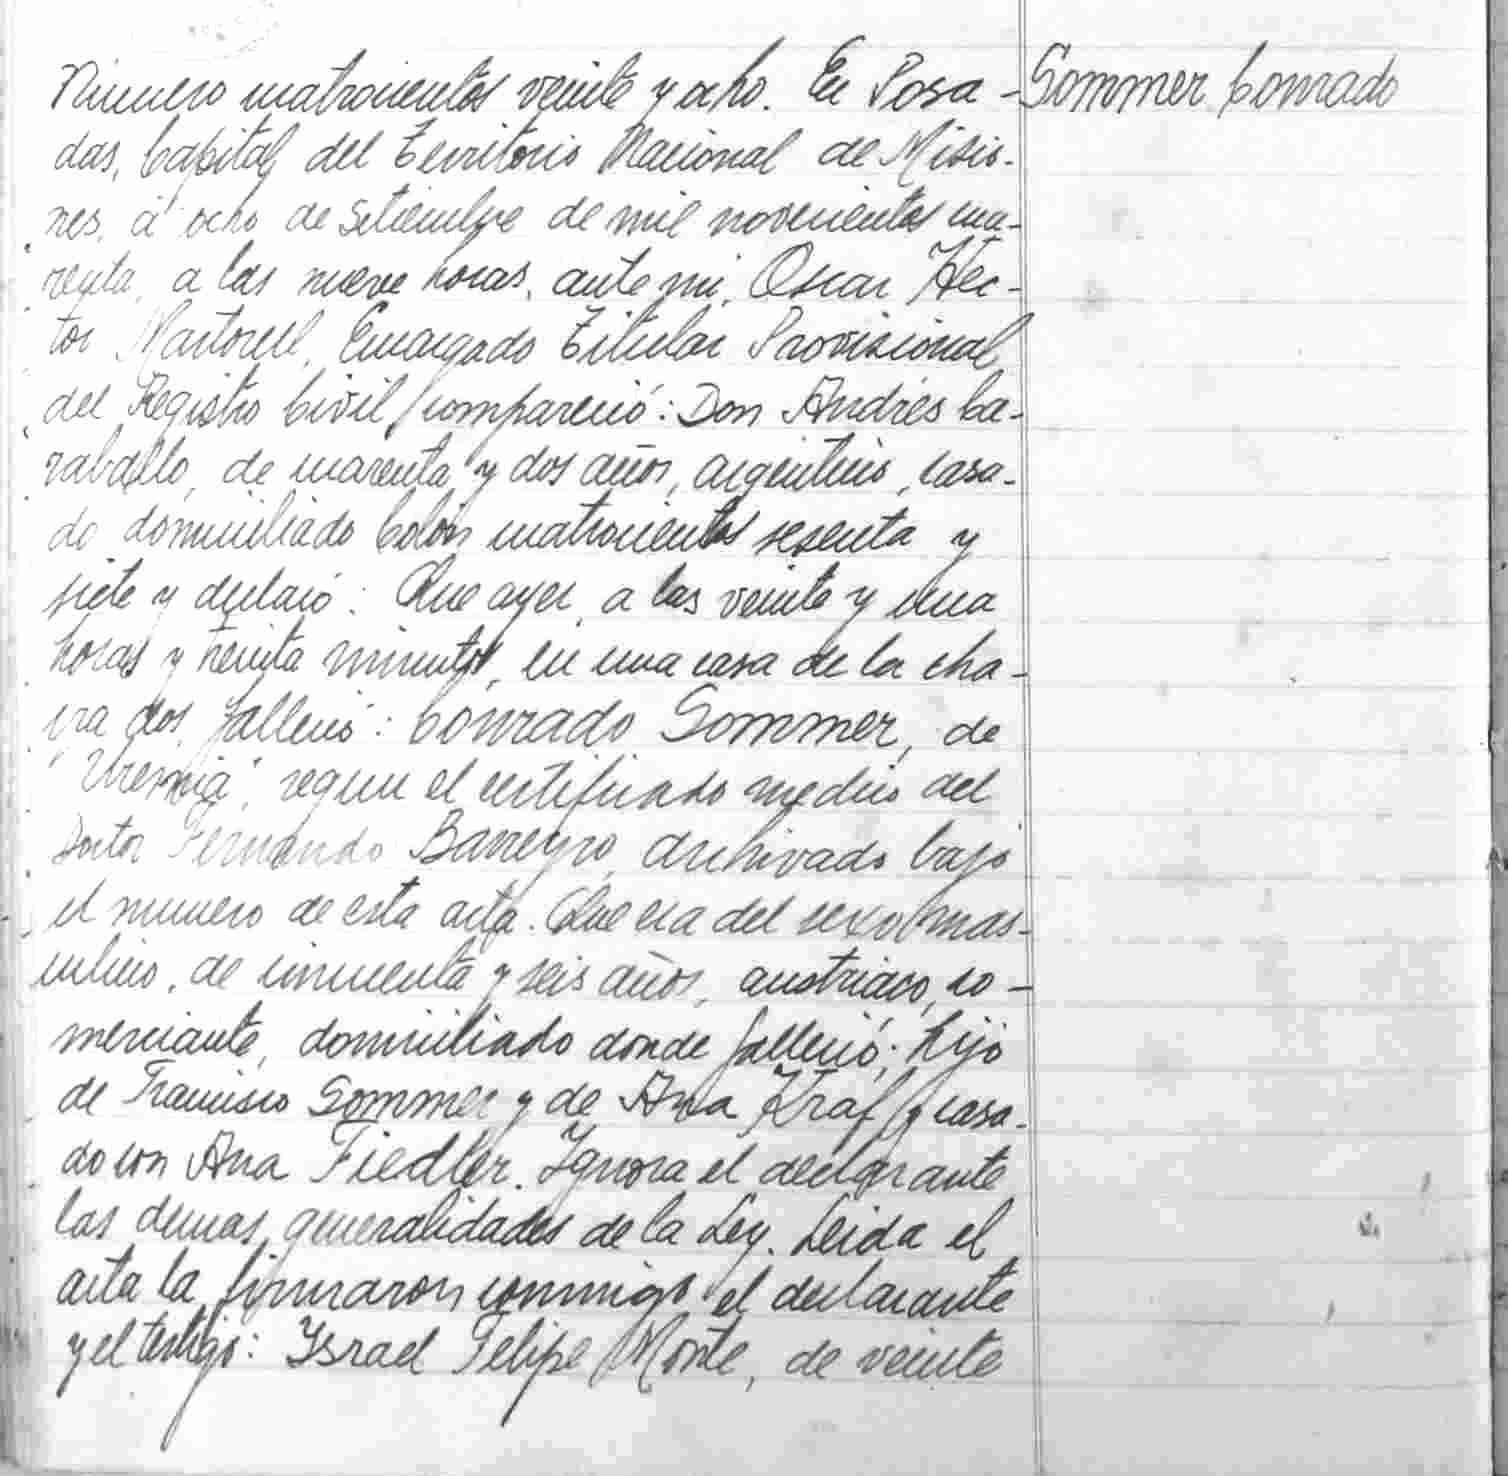 Número cuatrocientos veinte y ocho. En Posa-
Sommer Conrado
das, Capital del Territorio Nacional de Misio-
nes, á ocho de Setiembre de mil novecientos cua-
renta, a las nueve horas, ante mi, Oscar Hec-
tor Martorell, Encargado Titular Provisional
del Registro Civil, compareció: Don Andrés Ca-
raballo, de cuarenta y dos años, argentino, casa-
do domiciliado Colón cuatrocientos sesenta y
siete y declaró: Que ayer, a las veinte y una
horas y treinta minutos, en una casa de la cha-
cra dos, falleció: Conrado Sommer, de
"Uremia", segun el certificado medico del
Doctor Fernando Barreyro, archivado bajo
el numero de esta acta. Que era del sexo mas-
culino, de cincuenta y seis años, austriaco, co-
merciante, domiciliado donde falleció; hijo
de Francisco Sommer y de Ana Kraf y casa-
do con Ana Fiedler. Ignora el declarante
las demas generalidades de la Ley. Leida el
acta la firmaron conmigo el declarante
y el testigo: Israel Felipe Monte, de veinte